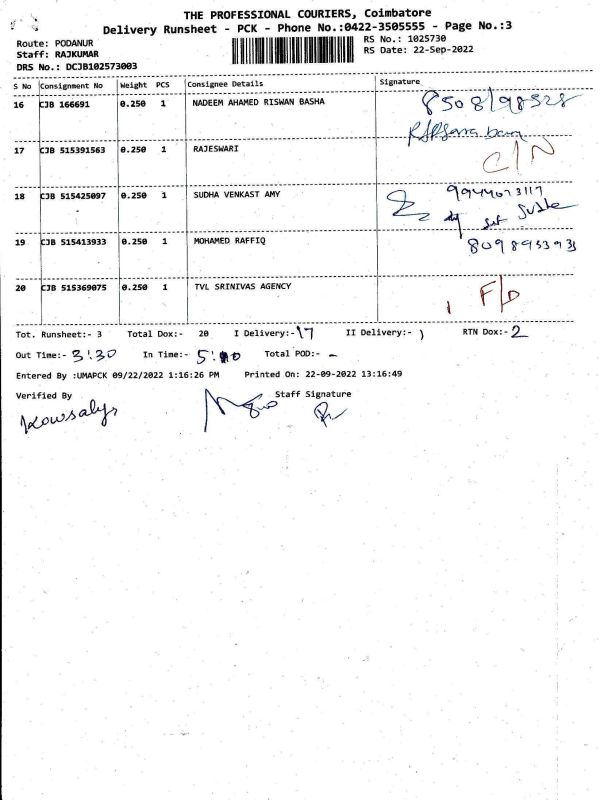 THE PROFESSIONAL COURIERS, Coimbatore
Delivery Runsheet - PCK - Phone No.:0422-3505555 - Page No.:3
Route: PODANUR
Staff: RAJKUMAR
DRS No.: DCJB102573003
RS No.: 1025730
RS Date: 22-Sep-2022
S No Consignment No Weight PCS Consignee Details Signature
16 CJB 166691 0.250 1 NADEEM AHAMED RISWAN BASHA
17 CJB 515391563 0.250 1 RAJESWARI C/N
18 CJB 515425097 0.250 1 SUDHA VENKAST AMY
19 CJB 515413933 0.250 1 MOHAMED RAFFIQ
20 CJB 515369075 0.250 1 TVL SRINIVAS AGENCY F/D
Tot. Runsheet:- 3 Total Dox:- 20 I Delivery:- 17 II Delivery:- ) RTN Dox:- 2
Out Time:- 3:30 In Time:- 5:00 Total POD:- -
Entered By :UMAPCK 09/22/2022 1:16:26 PM Printed On: 22-09-2022 13:16:49
Verified By Staff Signature
Kowsalya